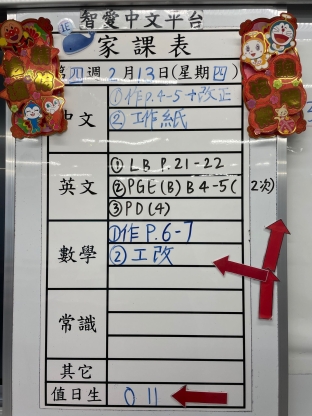 智愛中文平台
1E
家課表
第四週2月13日(星期四)
中文
①作p.4-5+改正
②工作紙
英文
①LB P.21-22
②PGE(B) B4-5(2次)
③PD(4)
數學
①作P.6-7
②工改
常識
其它
值日生
011